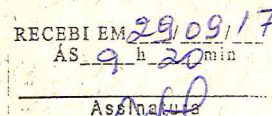 RECEBI EM 29/09/17
ÀS 9 h 20 min
Assinatura